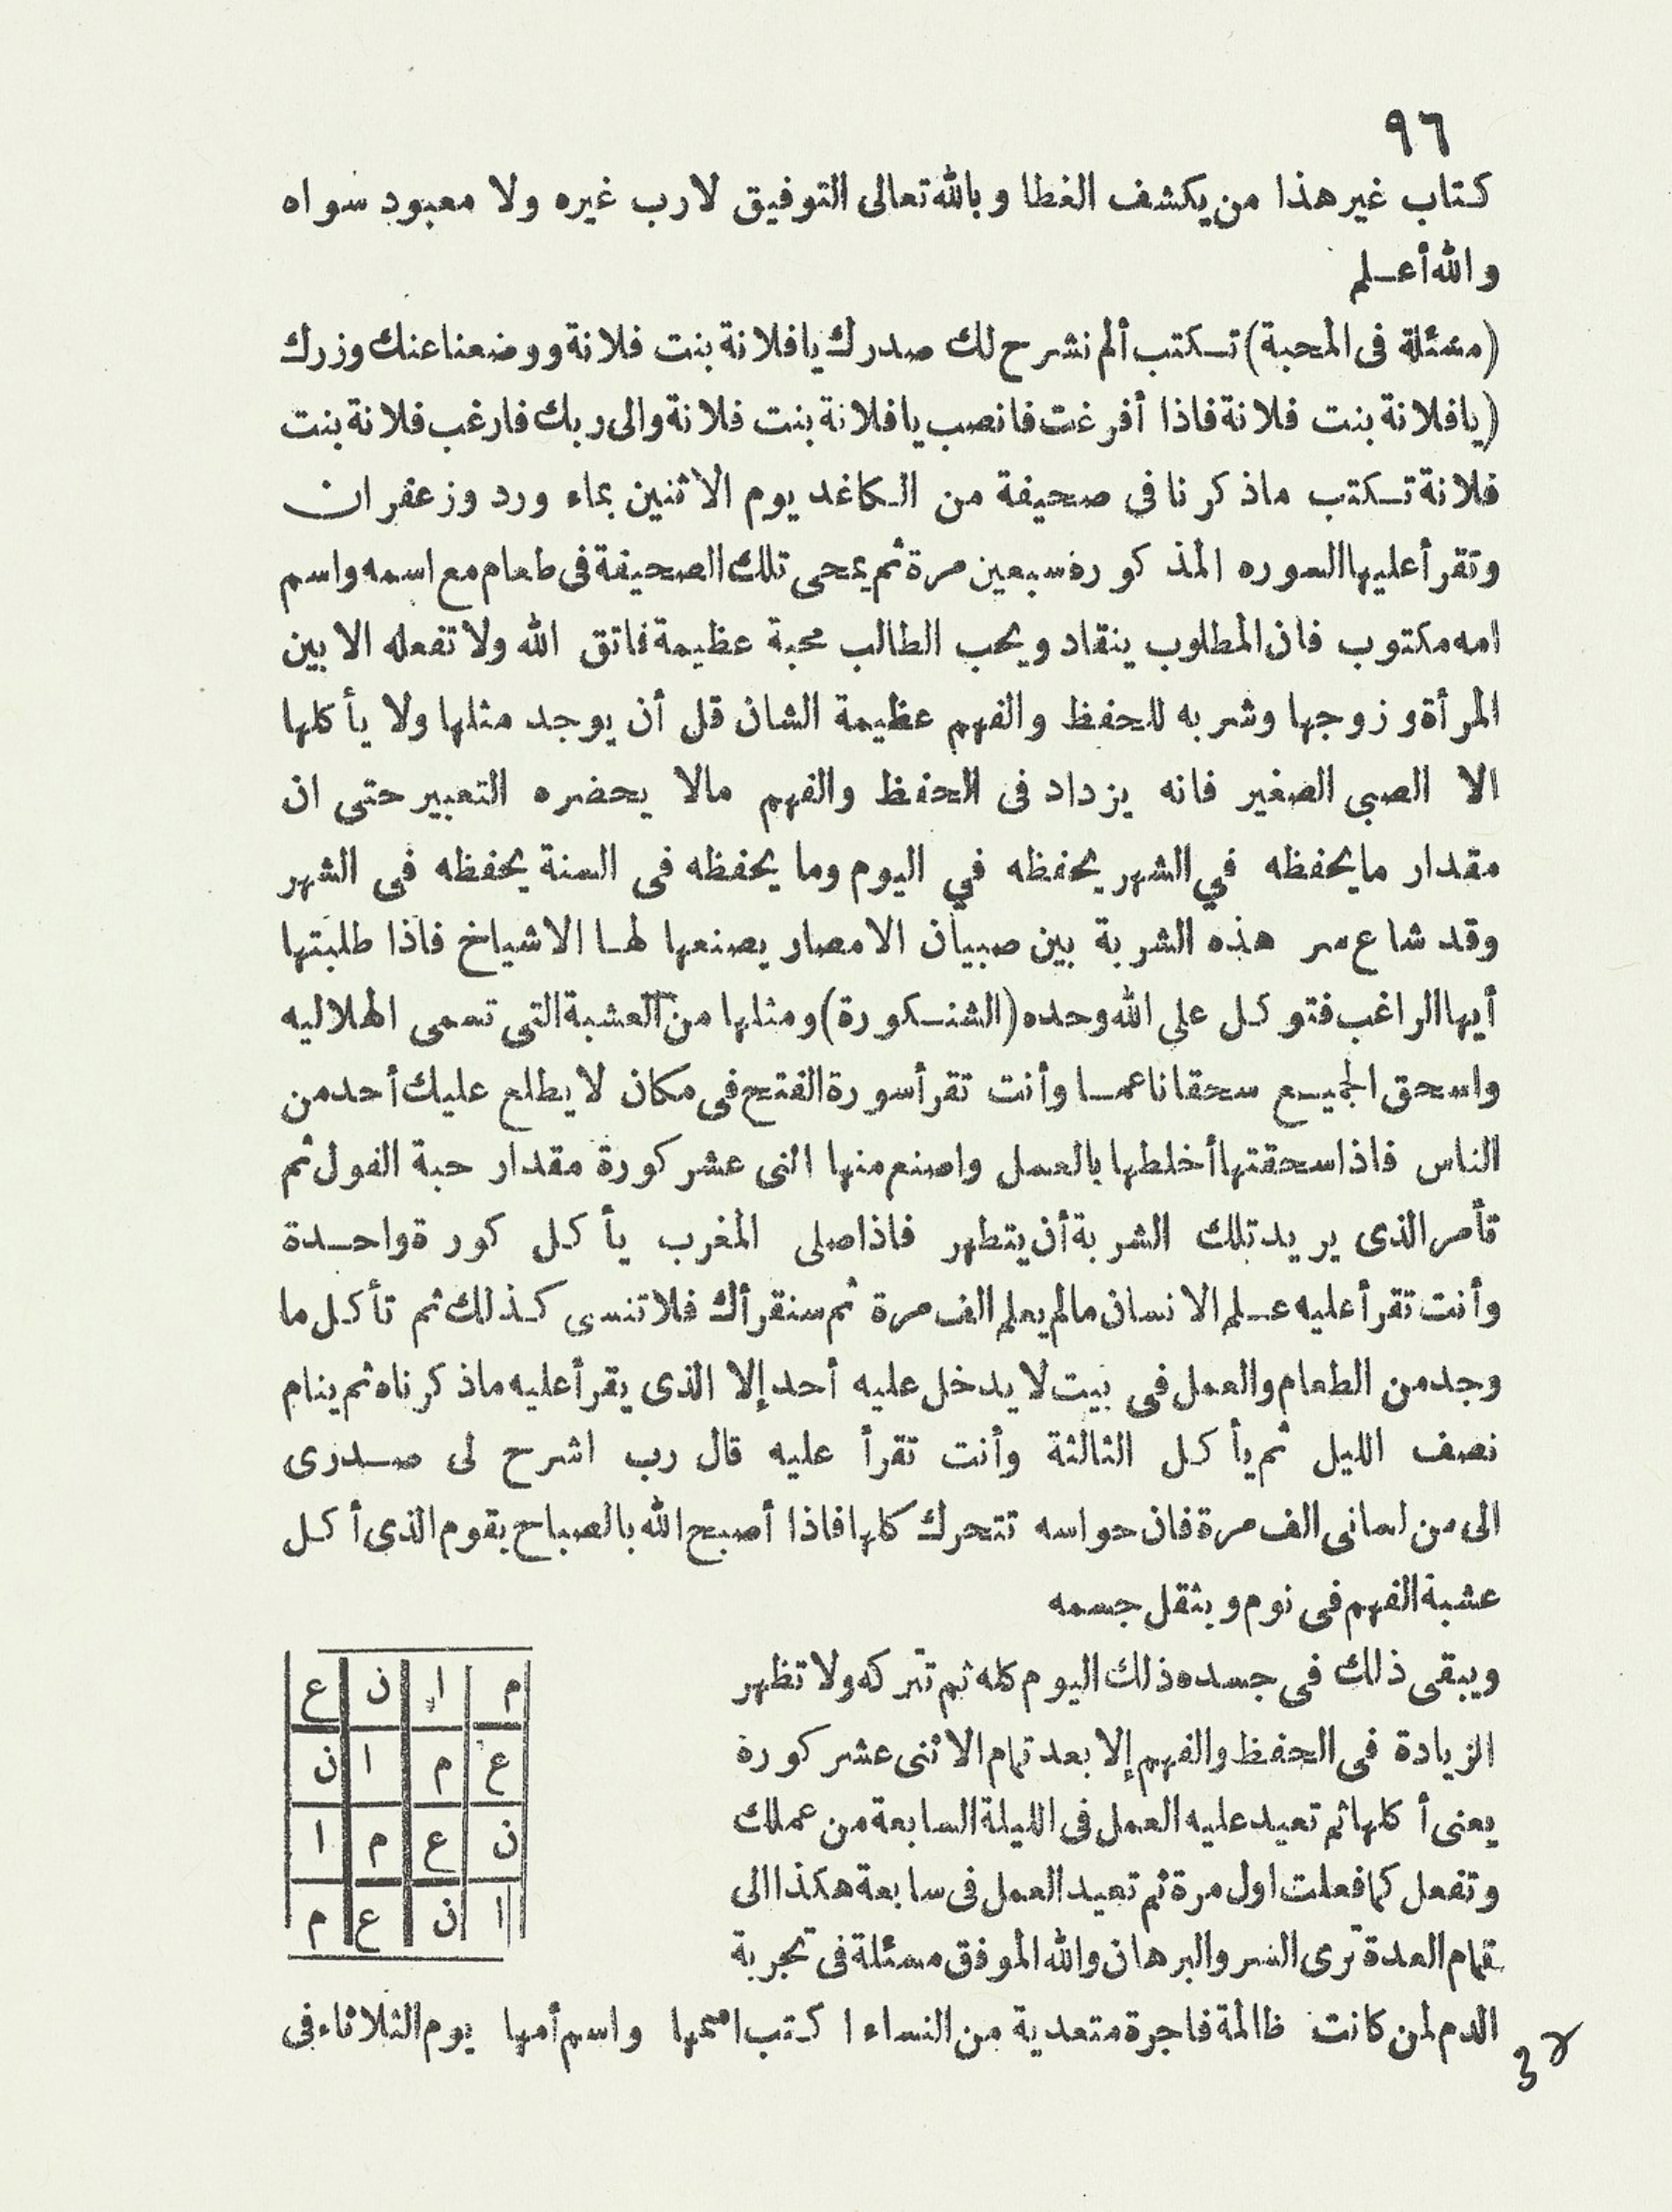 ٩٦
كتاب غير هذا من يكشف الغطا وبالله تعالى التوفيق لا رب غيره ولا معبود سواه
والله أعلم
(مسئلة فى المحبة) تكتب ألم نشرح لك صدرك يا فلانة بنت فلانة ووضعنا عنك وزرك
(يا فلانة بنت فلانة فاذا أفرغت فانصب يا فلانة بنت فلانة والى ربك فارغب فلانة بنت
فلانة تكتب ماذكرنا فى صحيفة من الكاغد يوم الاثنين بماء ورد وزعفران
وتقرأ عليها السوره المذكورة سبعين مرة ثم يمحى تلك الصحيفة فى طعام مع اسمه واسم
امه مكتوب فان المطلوب ينقاد ويحب الطالب محبة عظيمة فاتق الله ولا تفعله الا بين
المرأة وزوجها وشربه للحفظ والفهم عظيمة الشان قل أن يوجد مثلها ولا يأكلها
الا الصبى الصغير فانه يزداد فى الحفظ والفهم مالا يحضره التعبير حتى ان
مقدار مايحفظه في الشهر يحفظه في اليوم وما يحفظه فى السنة يحفظه فى الشهر
وقد شاع سر هذه الشربة بين صبيان الامصار يصنعها لها الاشياخ فاذا طلبتها
أيها الراغب فتوكل على الله وحده (الشنكورة) ومثلها من العشبة التى تسمى الهلاليه
واسحق الجميع سحقا ناعما وأنت تقرأ سورة الفتح فى مكان لا يطلع عليك أحد من
الناس فاذا سحقتها أخلطها بالعسل واصنع منها اثنى عشر كورة مقدار حبة الفول ثم
تأمر الذى يريد تلك الشربة أن يتطهر فاذا صلى المغرب يأكل كورة واحدة
وأنت تقرأ عليه علم الانسان مالم يعلم الف مرة ثم سنقرأك فلا تنسى كذلك ثم تأكل ما
وجد من الطعام والعمل فى بيت لا يدخل عليه أحد إلا الذى يقرأ عليه ماذكرناه ثم ينام
نصف الليل ثم يأكل الثالثة وأنت تقرأ عليه قال رب اشرح لى صدرى
الى من لسانى الف مرة فان حواسه تتحرك كلها فاذا أصبح الله بالصباح يقوم الذى أكل
عشبة الفهم فى نوم ويثقل جسمه
ويبقى ذلك فى جسده ذلك اليوم كله ثم تتركه ولا تظهر
الزيادة فى الحفظ والفهم إلا بعد تمام الاثنى عشر كورة
يعنى أكلها ثم تعيد عليه العمل فى الليلة السابعة من عملك
وتفعل كما فعلت اول مرة ثم تعيد العمل فى سابعة هكذا الى
تمام العدة ترى السر والبرهان والله الموفق مسئلة فى تجربة
م ا ن ع
ع م ا ن
ن ع م ا
ا ن ع م
الدم لمن كانت ظالمة فاجرة متعدية من النساء اكتب اسمها واسم أمها يوم الثلاثاء فى